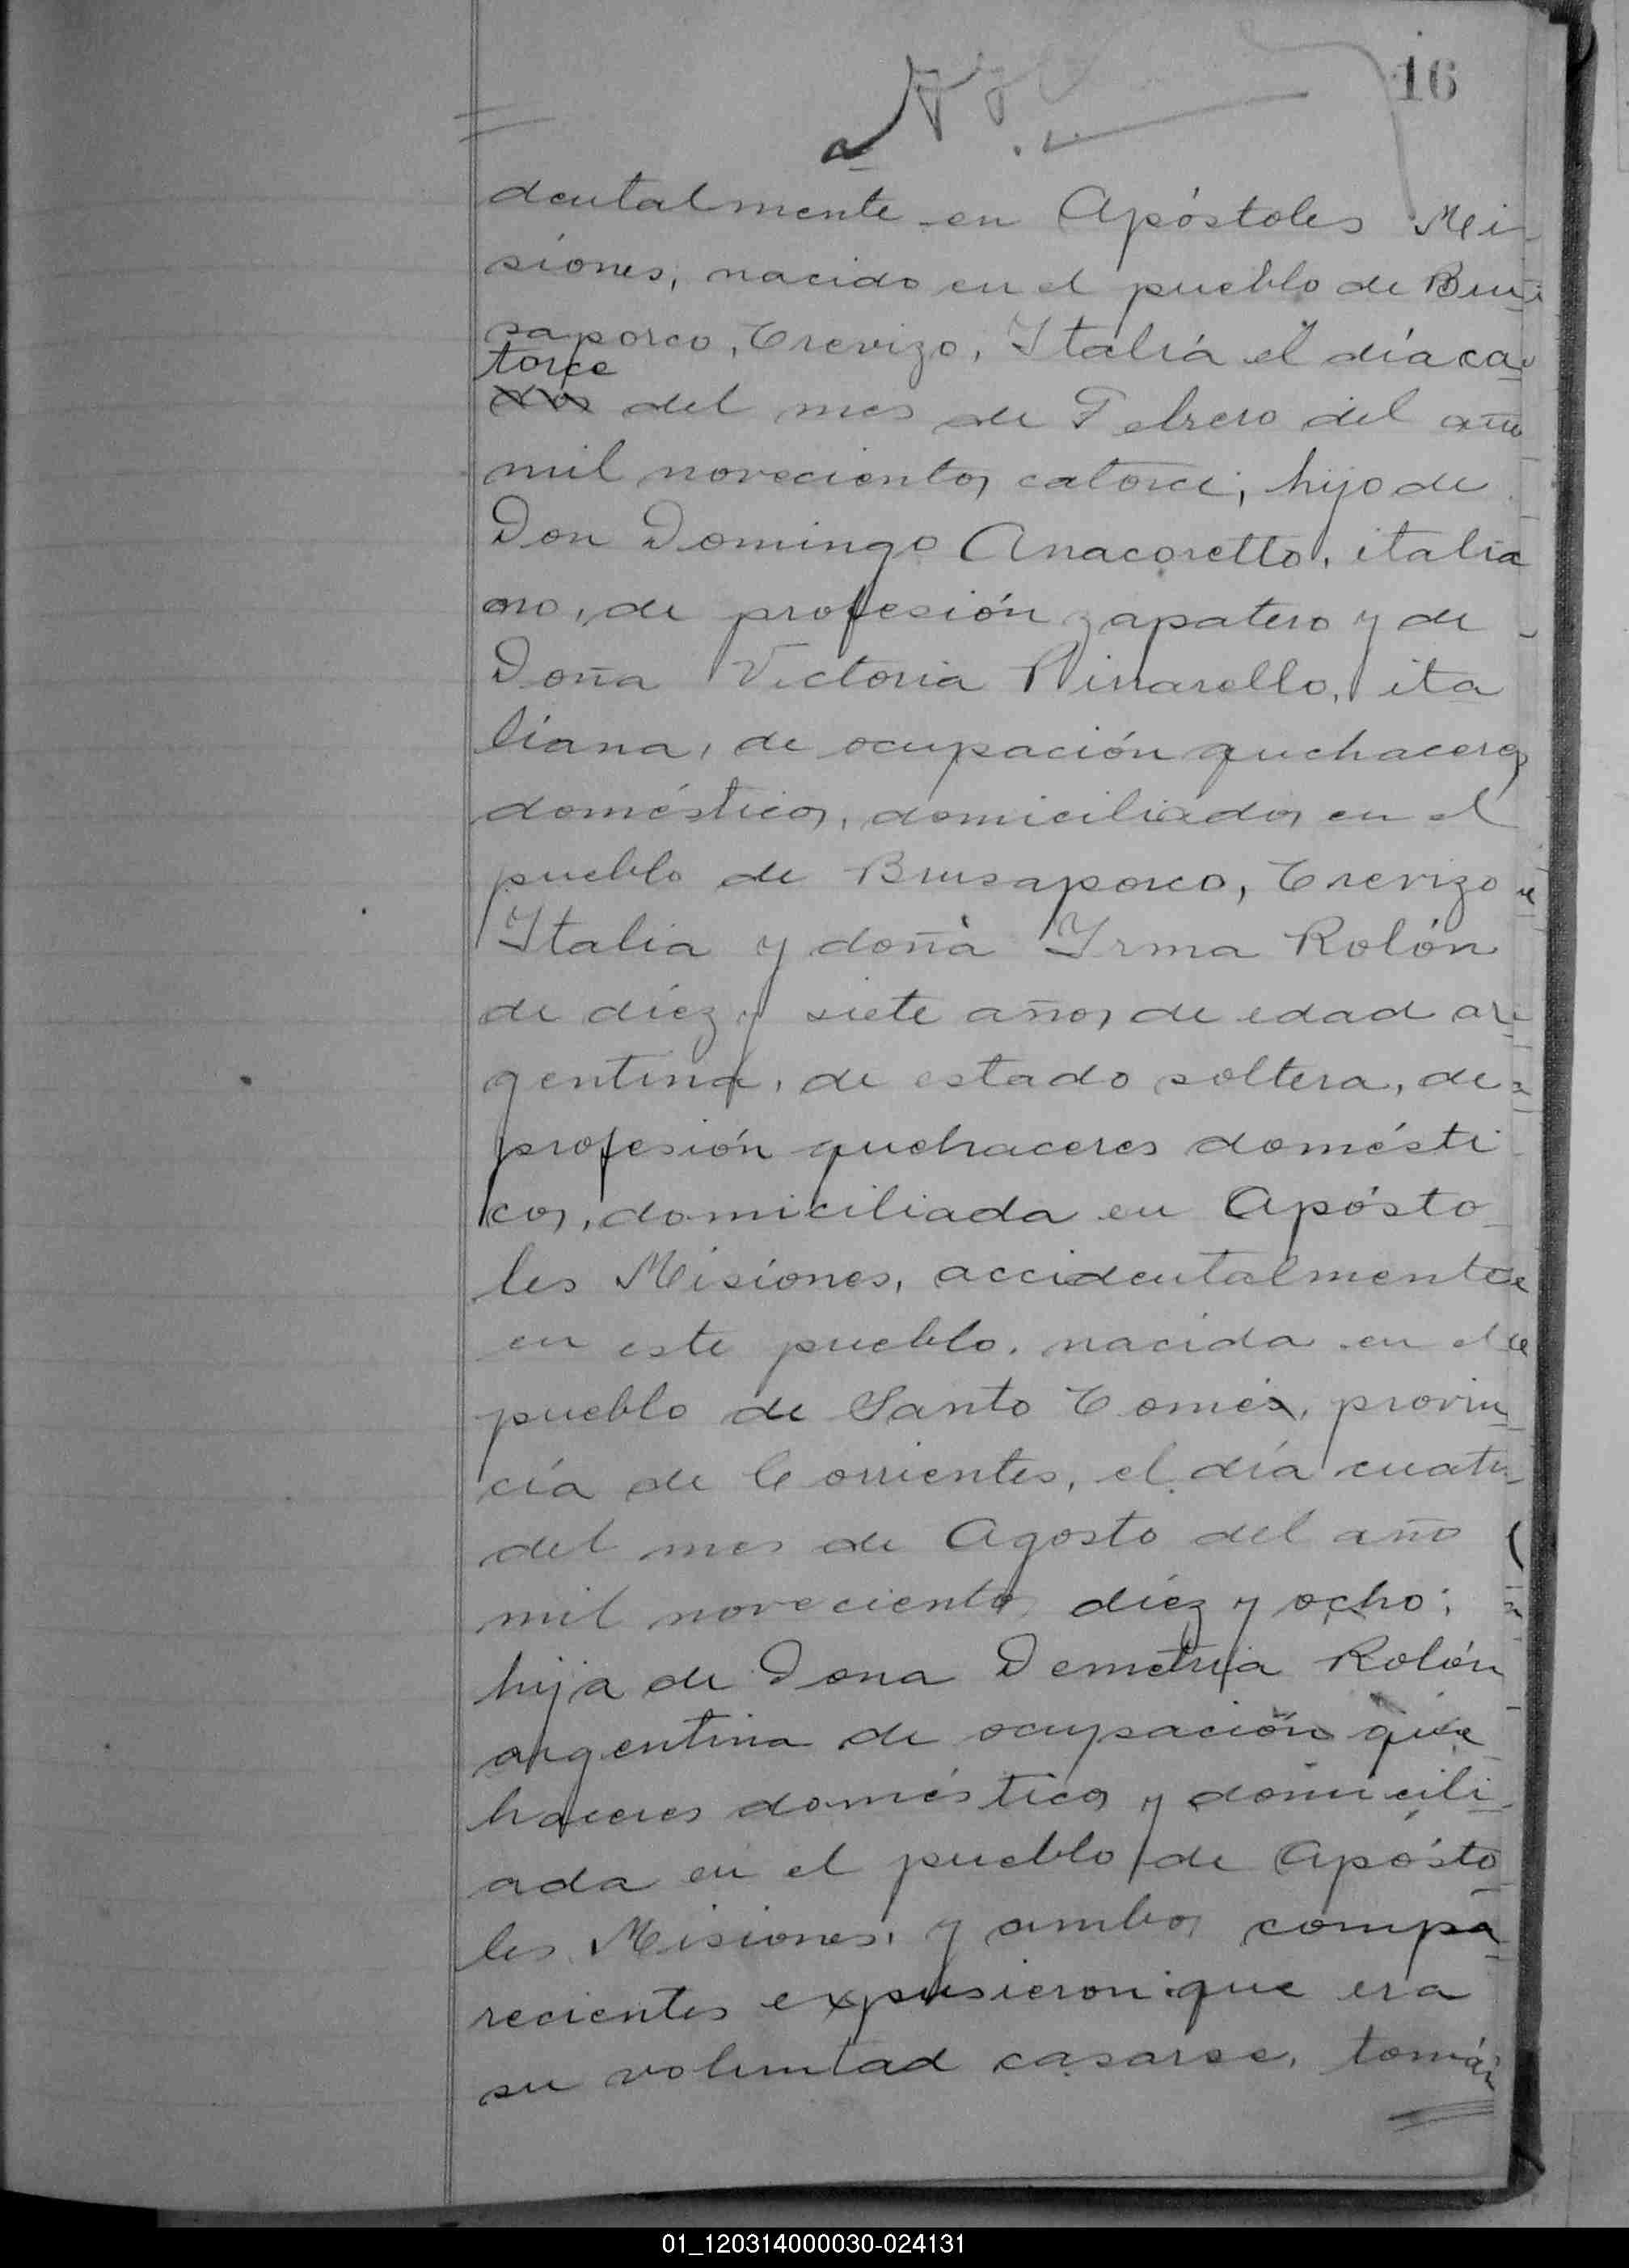 16
dentalmente en Apóstoles Mi-
siones, nacido en el pueblo de Bru-
saporco, Trevizo, Italia el día ca-
torce
dos del mes de Febrero del año
mil novecientos catorce; hijo de
Don Domingo Anacoretto, italia
no, de profesión zapatero y de
Doña Victoria Pinarello, ita
liana, de ocupación quehaceres
domésticos, domiciliados en el
pueblo de Brusaporco, Trevizo
Italia y doña Irma Rolón
de diez y siete años de edad ar-
gentina, de estado soltera, de
profesión quehaceres domésti
cos, domiciliada en Apósto
les Misiones, accidentalmente
en este pueblo, nacida en el
pueblo de Santo Tomés, provin
cia de Corrientes, el día cuatro
del mes de Agosto del año
mil novecientos diez y ocho;
hija de Dona Demetria Rolón
argentina de ocupación que
haceres domésticos y domicili
ada en el pueblo de Apósto
les Misiones, y ambos compa
recientes expusieron: que era
su voluntad casarse, tomán
01_120314000030-024131